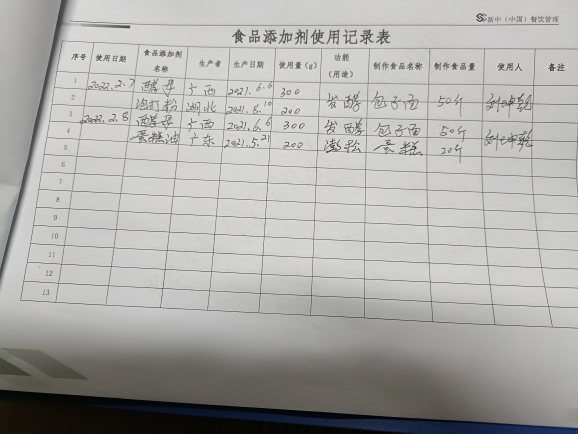 新中（中国）餐饮管理
食品添加剂使用记录表
序号 使用日期 食品添加剂名称 生产者 生产日期 使用量（g） 功能（用途） 制作食品名称 制作食品量 使用人 备注
1 2022.2.7 酵母 广西 2021.6.6 300 发酵 包子面 50斤
2 泡打粉 湖北 2021.8.10 200
3 2022.2.8 酵母 广西 2021.6.6 300 发酵 包子面 50斤
4 蛋糕油 广东 2021.5.21 200 澎松 蛋糕 20斤
5
6
7
8
9
10
11
12
13